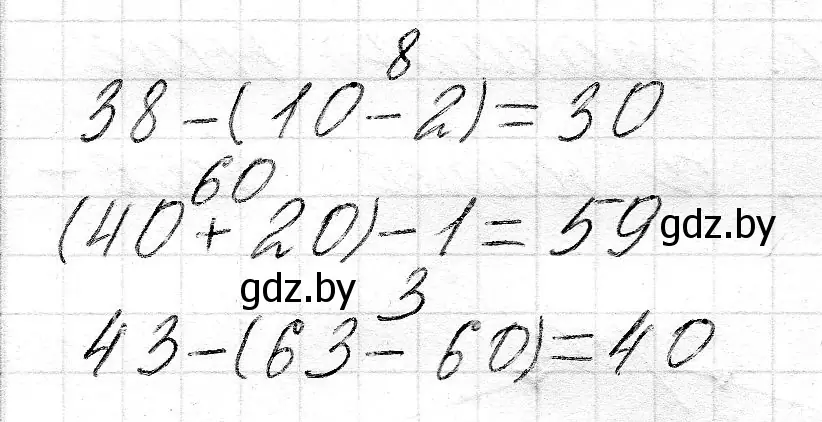 8
38-(10-2)=30
60
(40+20)-1=59 gdz.by
gdz.by 3
43-(63-60)=40